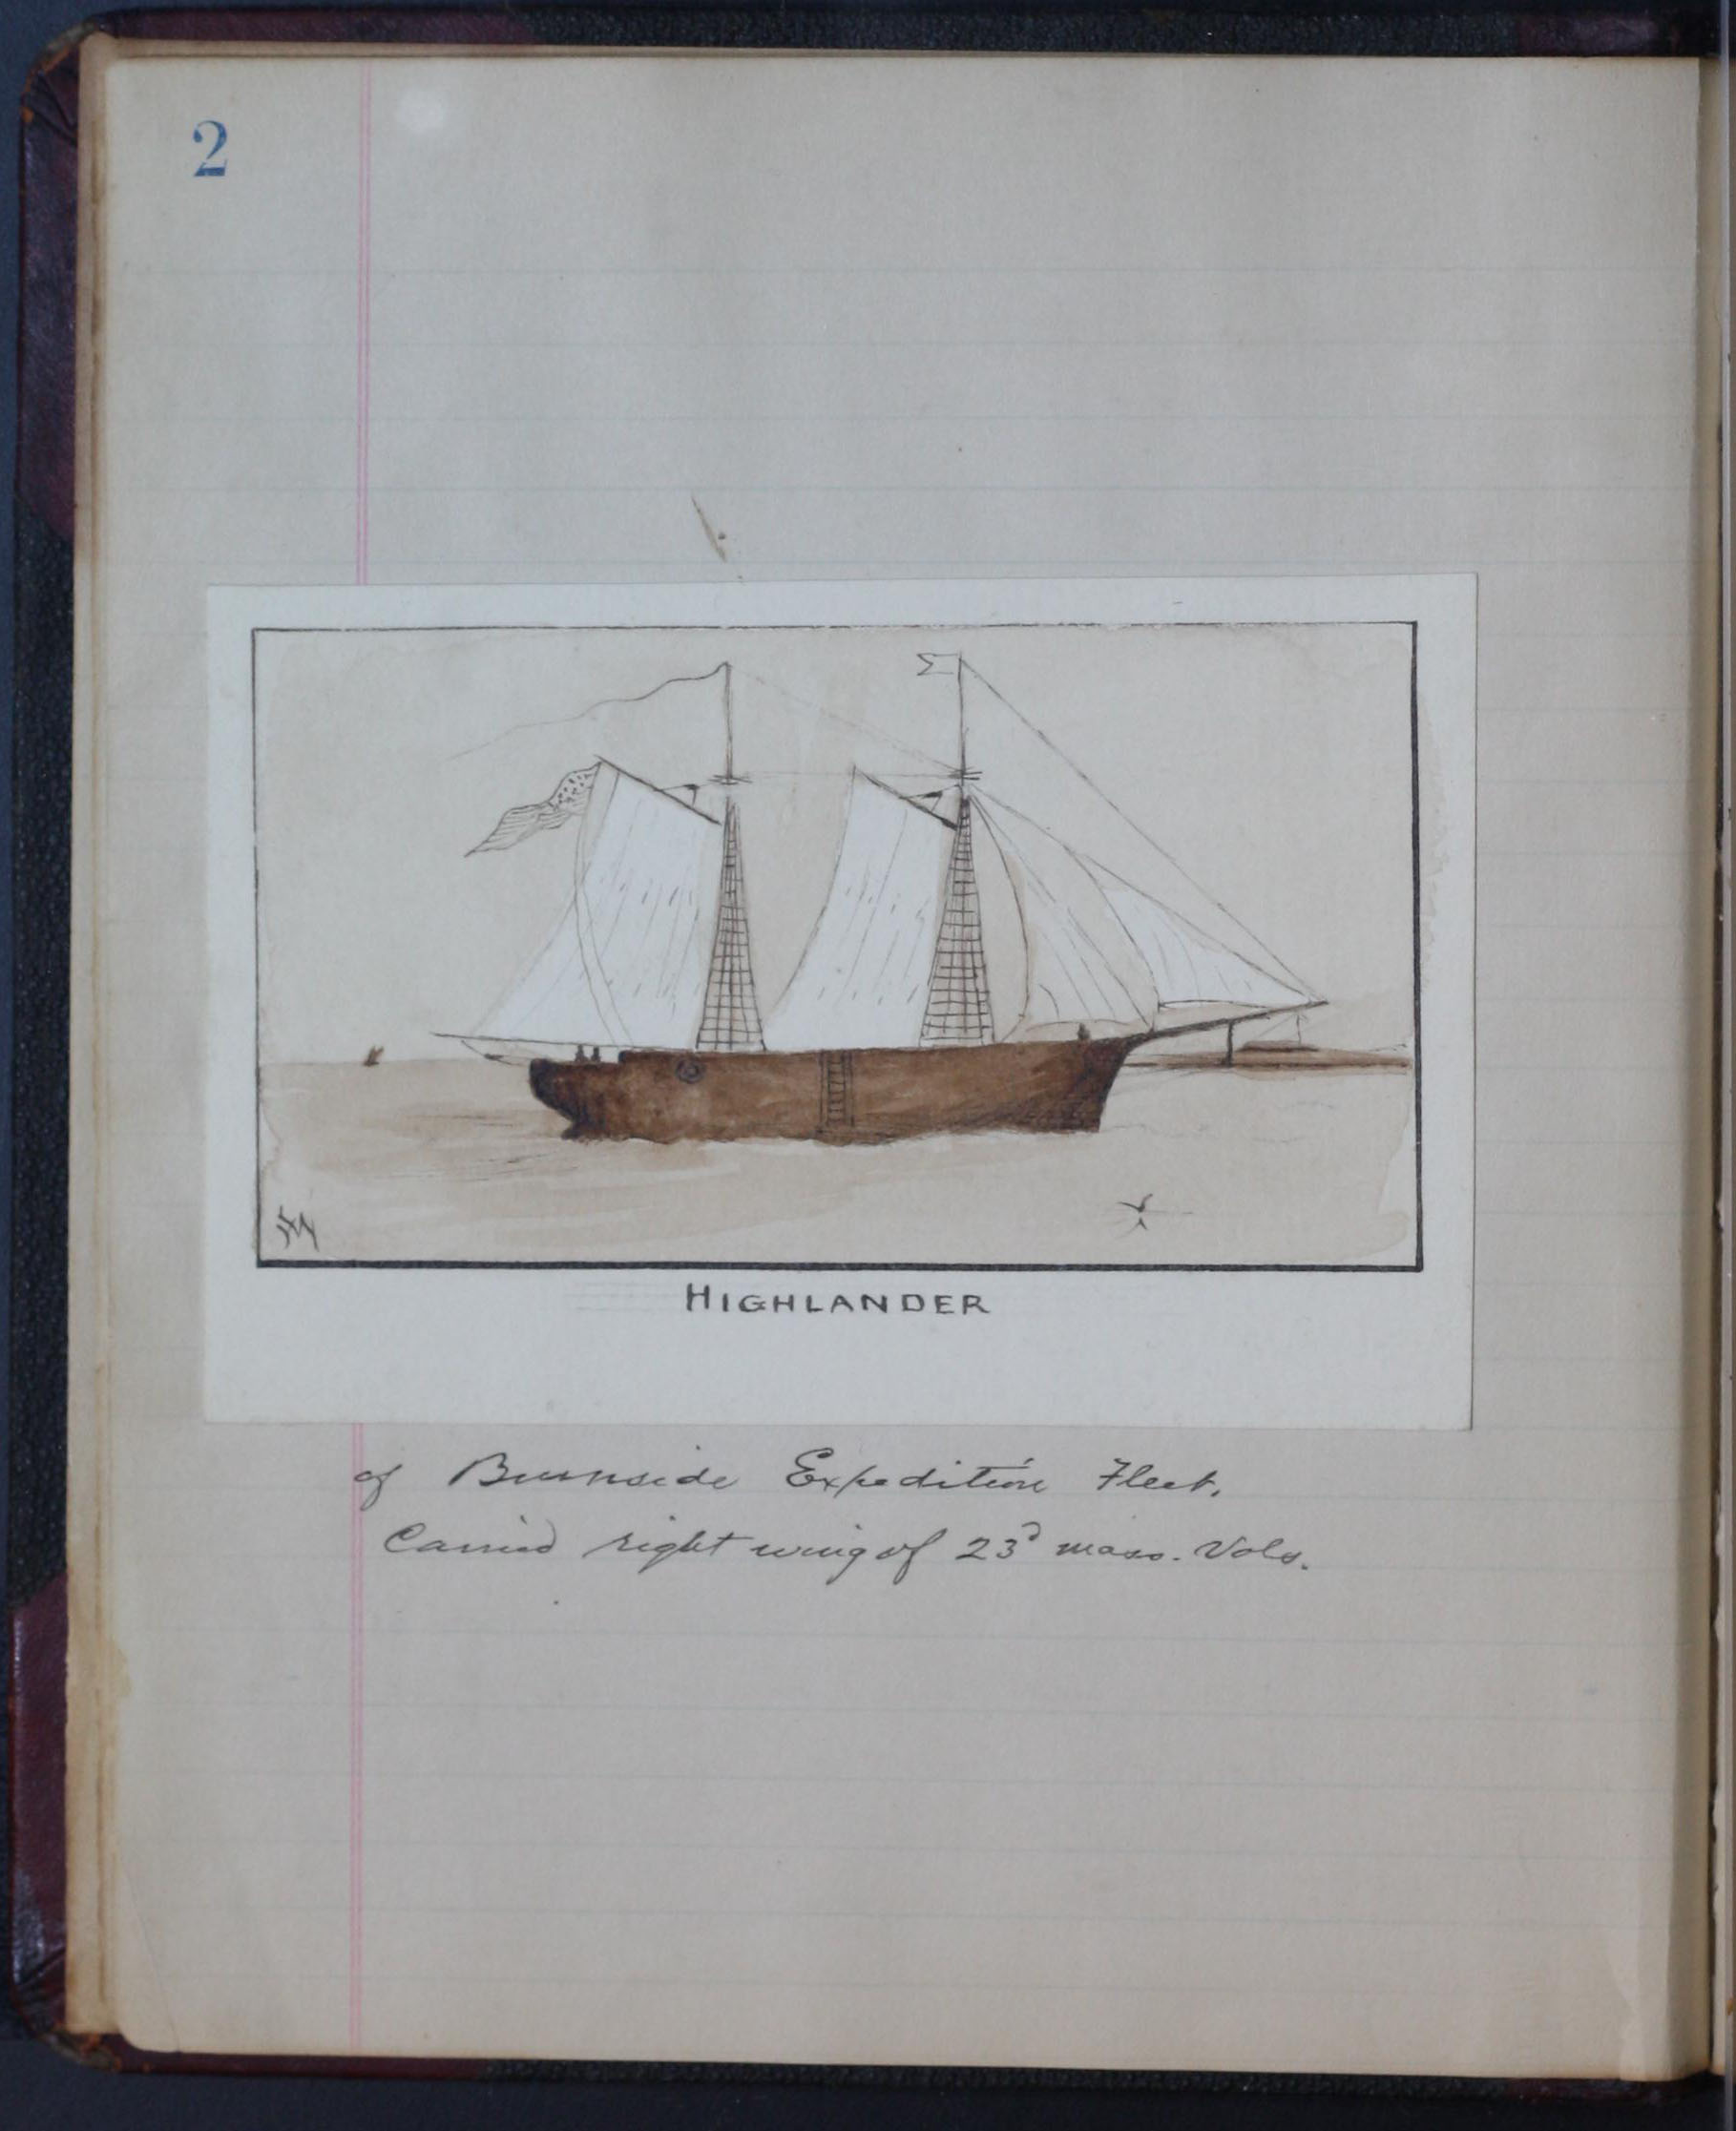 2
HIGHLANDER
of Burnside Expedition Fleet.
Carried right wing of 23d mass. Vols.